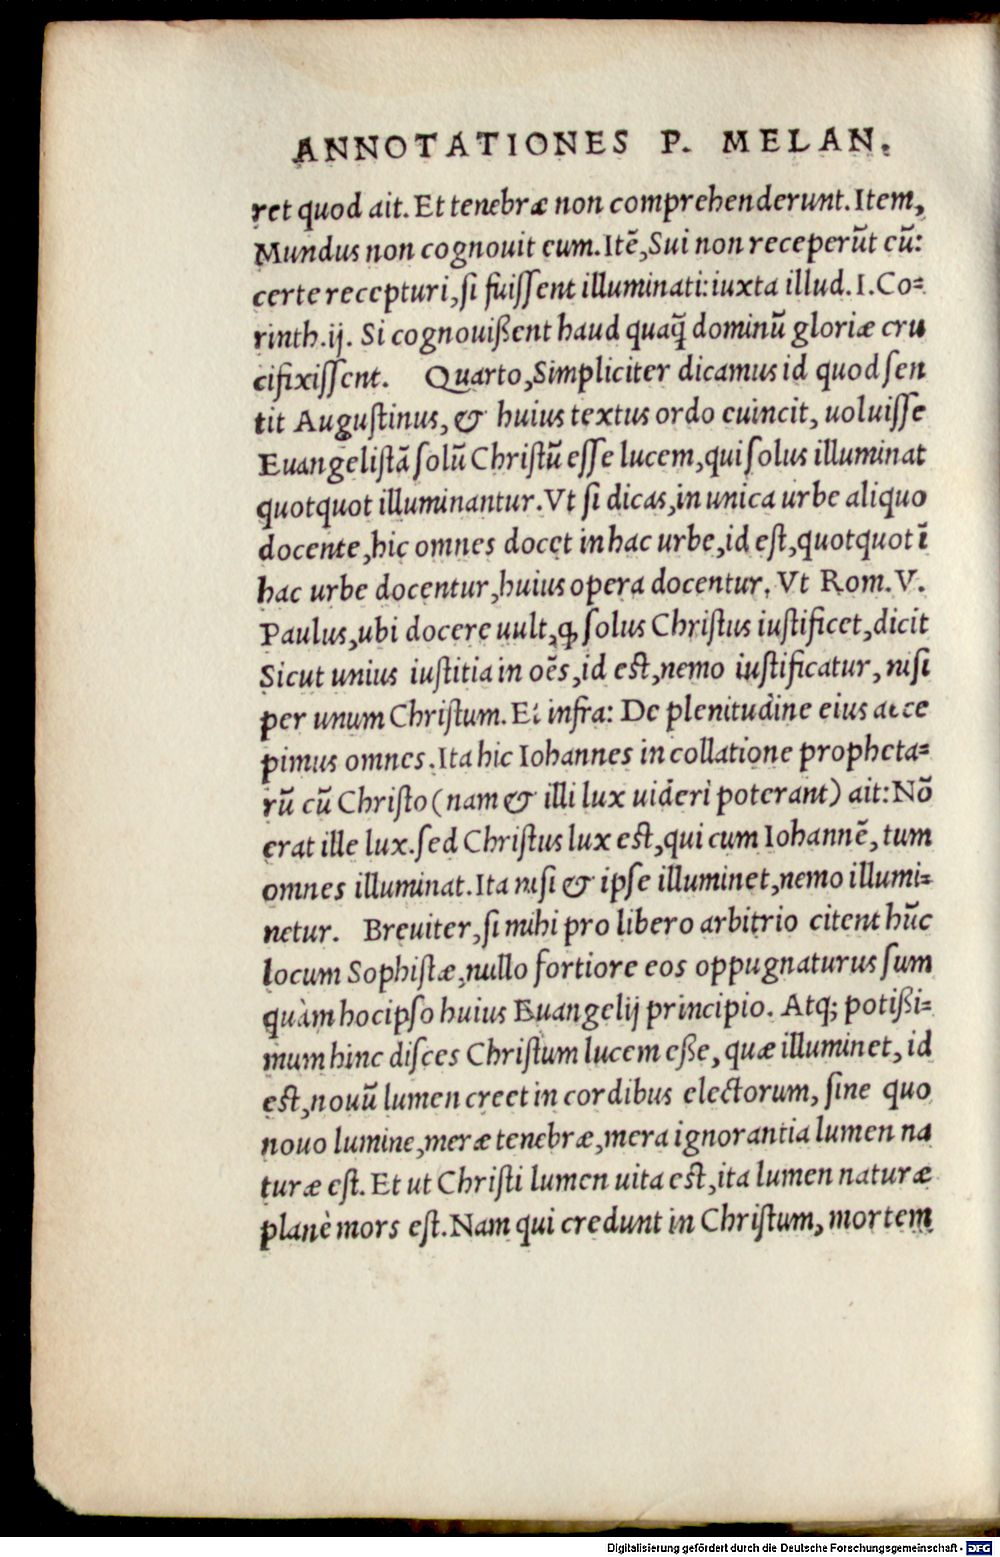 ANNOTATIONES P. MELAN.
ret quod ait. Et tenebræ non comprehenderunt. Item,
Mundus non cognouit eum. Itẽ, Sui non receperũt eũ:
certe recepturi, si fuissent illuminati: iuxta illud. I. Co-
rinth. ij. Si cognouißent haud quaq̃ dominũ gloriæ cru
cifixissent. Quarto, Simpliciter dicamus id quod sen
tit Augustinus, & huius textus ordo euincit, uoluisse
Euangelistã solũ Christũ esse lucem, qui solus illuminat
quotquot illuminantur. Vt si dicas, in unica urbe aliquo
docente, hic omnes docet in hac urbe, id est, quotquot ĩ
hac urbe docentur, huius opera docentur. Vt Rom. V.
Paulus, ubi docere uult, ꝙ solus Christus iustificet, dicit
Sicut unius iustitia in oẽs, id est, nemo iustificatur, nisi
per unum Christum. Et infra: De plenitudine eius acce
pimus omnes. Ita hic Iohannes in collatione propheta-
rũ cũ Christo (nam & illi lux uideri poterant) ait: Nõ
erat ille lux. sed Christus lux est, qui cum Iohannẽ, tum
omnes illuminat. Ita nisi & ipse illuminet, nemo illumi-
netur. Breuiter, si mihi pro libero arbitrio citent hũc
locum Sophistæ, nullo fortiore eos oppugnaturus sum
quàm hoc ipso huius Euangelij principio. Atq; potißi-
mum hinc disces Christum lucem eße, quæ illuminet, id
est, nouũ lumen creet in cordibus electorum, sine quo
nouo lumine, meræ tenebræ, mera ignorantia lumen na
turæ est. Et ut Christi lumen uita est, ita lumen naturæ
planè mors est. Nam qui credunt in Christum, mortem
Digitalisierung gefördert durch die Deutsche Forschungsgemeinschaft - DFG